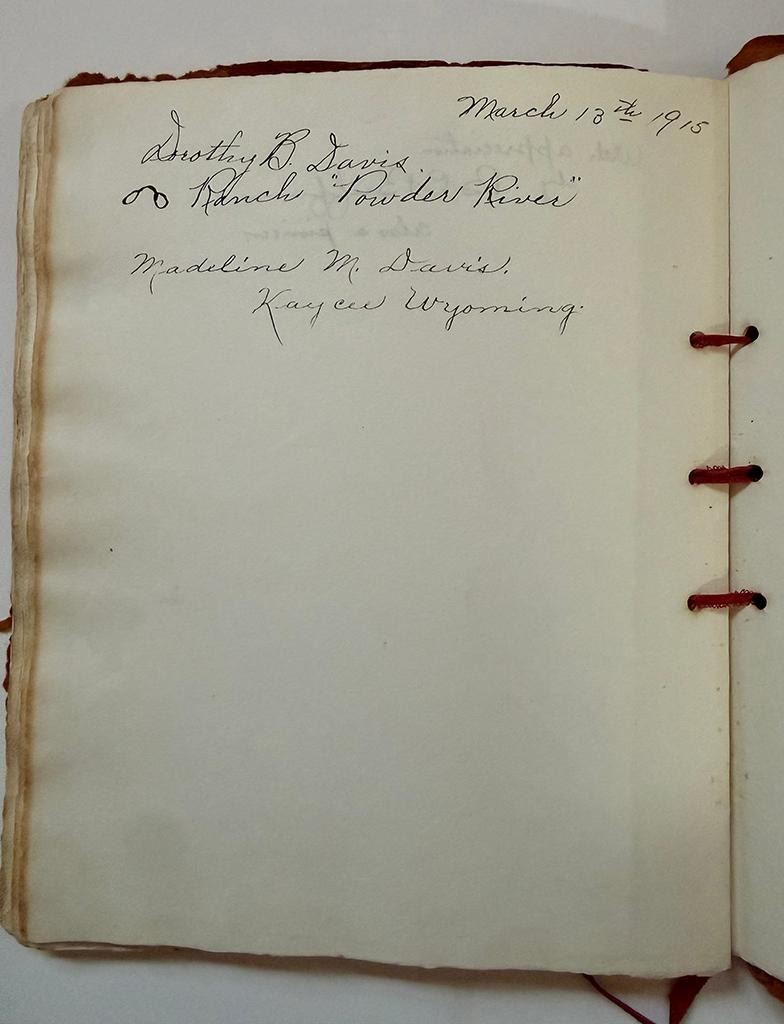 March 13th 1915
Dorothy B. Davis.
Ranch "Powder River"
Madeline M. Davis.
Kaycee Wyoming.